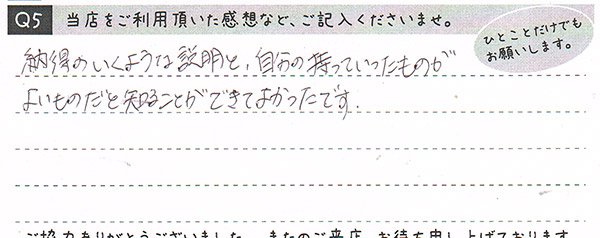 Q5 当店をご利用頂いた感想など、ご記入くださいませ。
ひとことだけでも
お願いします。
納得のいくような説明と、自分の持っていったものが
よいものだと知ることができてよかったです.
ご協力ありがとうございました。またのご来店、お待ち申し上げております